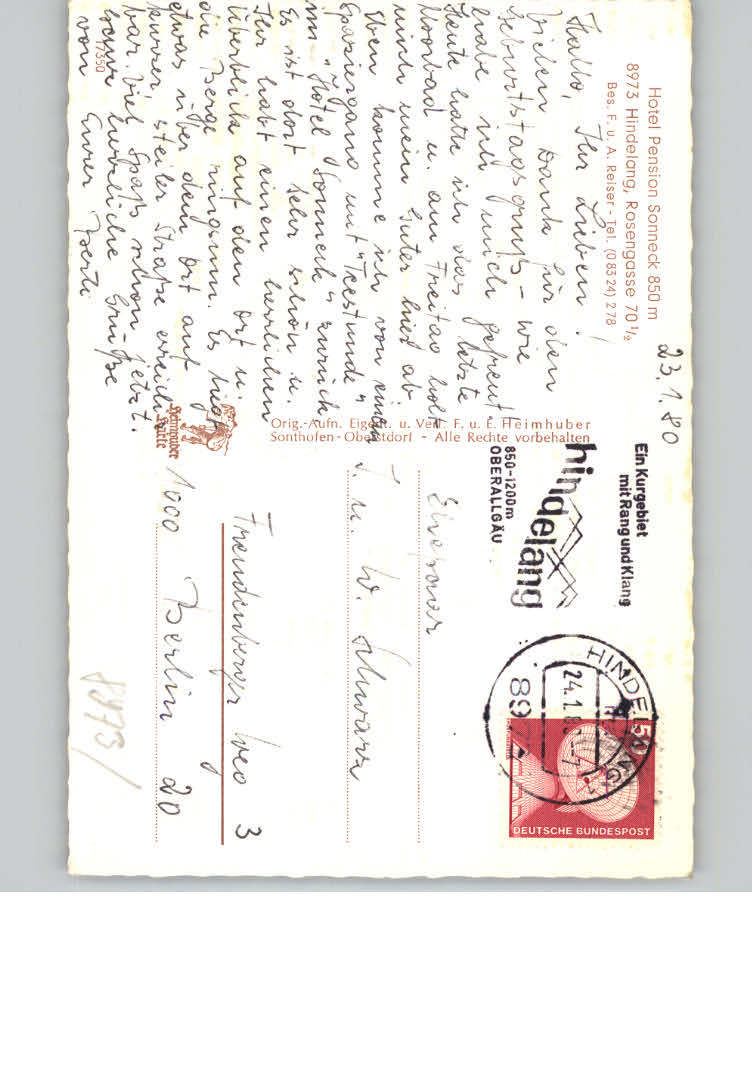 Hotel Pension Sonneck 850 m
8973 Hindelang, Rosengasse 70 1/2
Bes. F. u. A. Reiser - Tel. (0 83 24) 2 78
23.1.80
Hallo, Ihr Lieben!
Vielen Dank für den
Geburtstagsgruß - wie
habe ich mich gefreut
Heute hatte ich das letzte
Moorbad u. am Freitag holt
mich mein Guter hier ab
Eben komme ich von einem
Spaziergang mit "Teestunde"
im "Hotel Sonneck" zurück
Es ist dort sehr schön u.
Ihr habt einen herrlichen
Überblick auf den Ort u.
die Berge ringsum. Es liegt
etwas über dem Ort auf
kurzer steiler Straße erreich-
bar. Viel Spaß schon jetzt.
Sehr herzliche Grüße
von Eurer Berti
17350
Orig.-Aufn. Eigent. u. Verl. F. u. E. Heimhuber
Sonthofen-Oberstdorf - Alle Rechte vorbehalten
Heimhuber
Karte
Ein Kurgebiet
mit Rang und Klang
hindelang
850-1200m
OBERALLGÄU
HINDELANG
24.1.8
8973
50
DEUTSCHE BUNDESPOST
Ehepaar
J. u. W. Schwarz
Freudenberger Weg 3
1000 Berlin 20
8973/